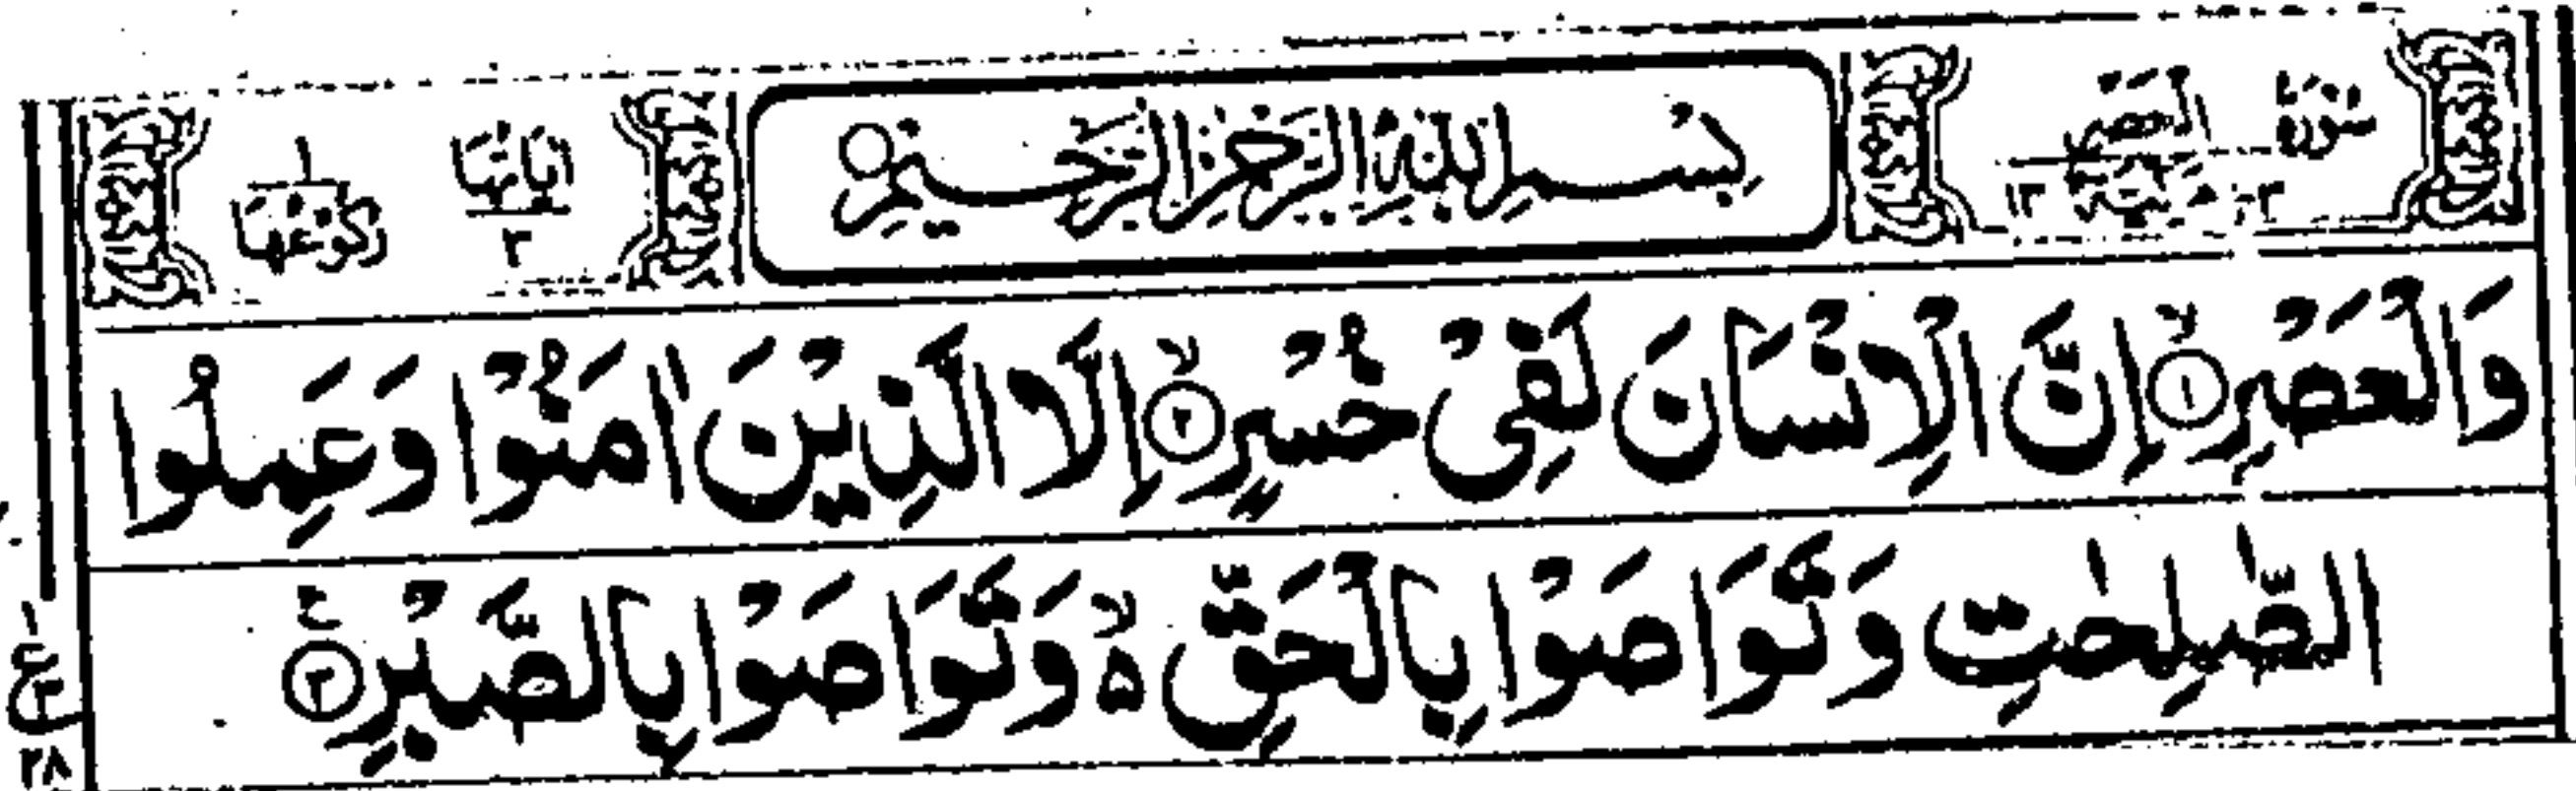 سُوْرَةُ الْعَصْرِ مَكِّيَّةٌ ١٣
بِسْمِ اللّٰهِ الرَّحْمٰنِ الرَّحِيْمِ
اٰيَاتُهَا ٣
رُكُوْعُهَا ١
وَالْعَصْرِ ۙ﴿١﴾ اِنَّ الْاِنْسَانَ لَفِیْ خُسْرٍ ۙ﴿٢﴾ اِلَّا الَّذِيْنَ اٰمَنُوْا وَعَمِلُوا
الصّٰلِحٰتِ وَتَوَاصَوْا بِالْحَقِّ ۙ۬ وَتَوَاصَوْا بِالصَّبْرِ ﴿٣﴾ ع
١
ع
٣
٢٨